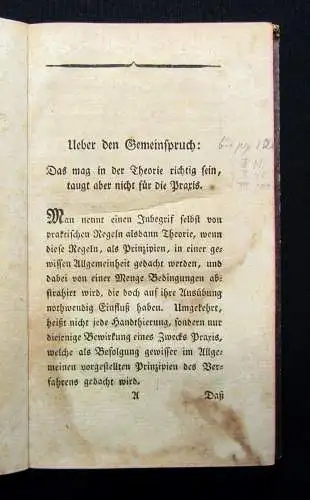 Ueber den Gemeinspruch:
Das mag in der Theorie richtig sein,
taugt aber nicht für die Praxis.
Man nennt einen Inbegrif selbst von
praktischen Regeln alsdann Theorie, wenn
diese Regeln, als Prinzipien, in einer ge-
wissen Allgemeinheit gedacht werden, und
dabei von einer Menge Bedingungen ab-
strahirt wird, die doch auf ihre Ausübung
nothwendig Einfluß haben. Umgekehrt,
heißt nicht jede Handthierung, sondern nur
diejenige Bewirkung eines Zwecks Praxis,
welche als Befolgung gewisser im Allge-
meinen vorgestellten Prinzipien des Ver-
fahrens gedacht wird.
A Daß